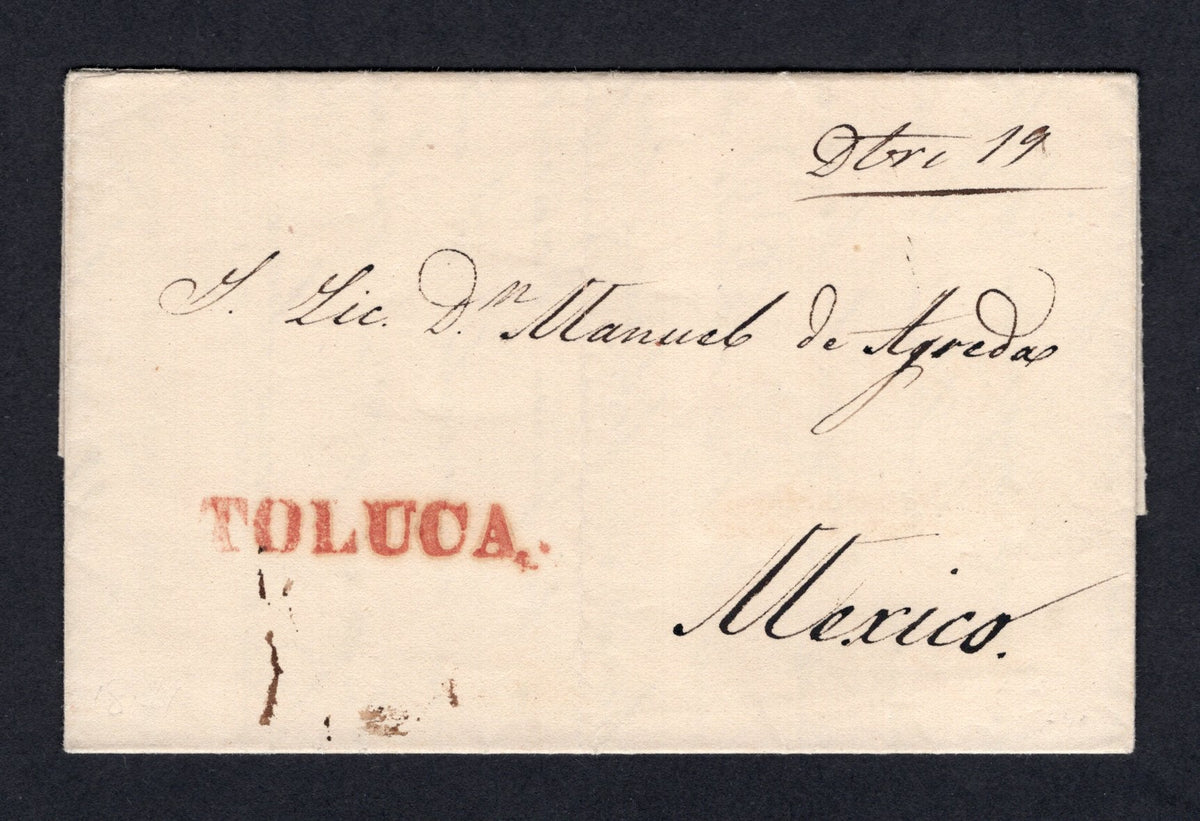 Dbre 19
S. Lic. Dn Manuel de Agreda
TOLUCA.
Mexico.